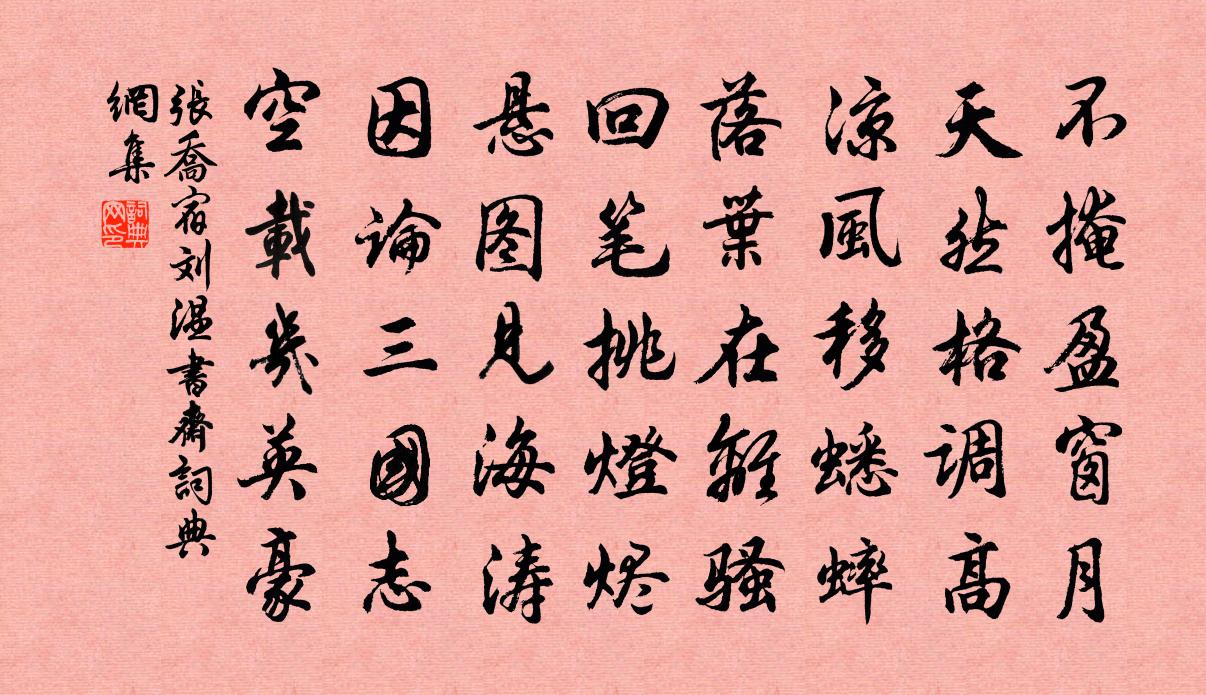 不掩盈窗月
天然格调高
涼風移蟋蟀
落葉在離騷
回笔挑燈烬
悬图見海涛
因論三國志
空載幾英豪
張喬宿刘温書齋詞典
網集
詞典
网印